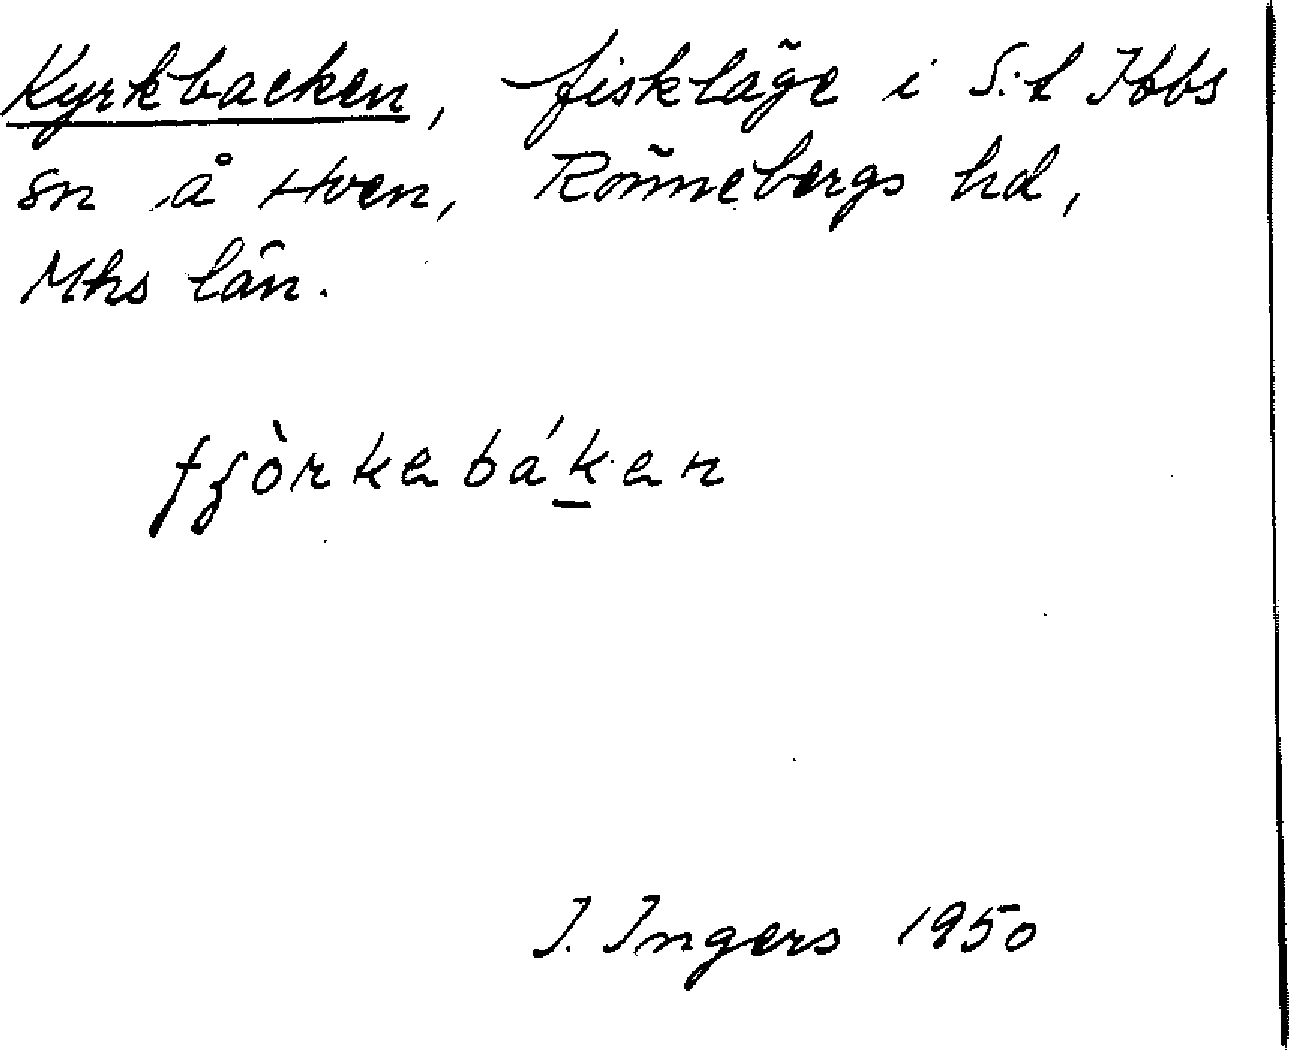 Kyrkbacken, fiskläge i S:t Ibbs
sn å Hven, Rönnebergs hd,
Mhs län.
I. Ingers 1950